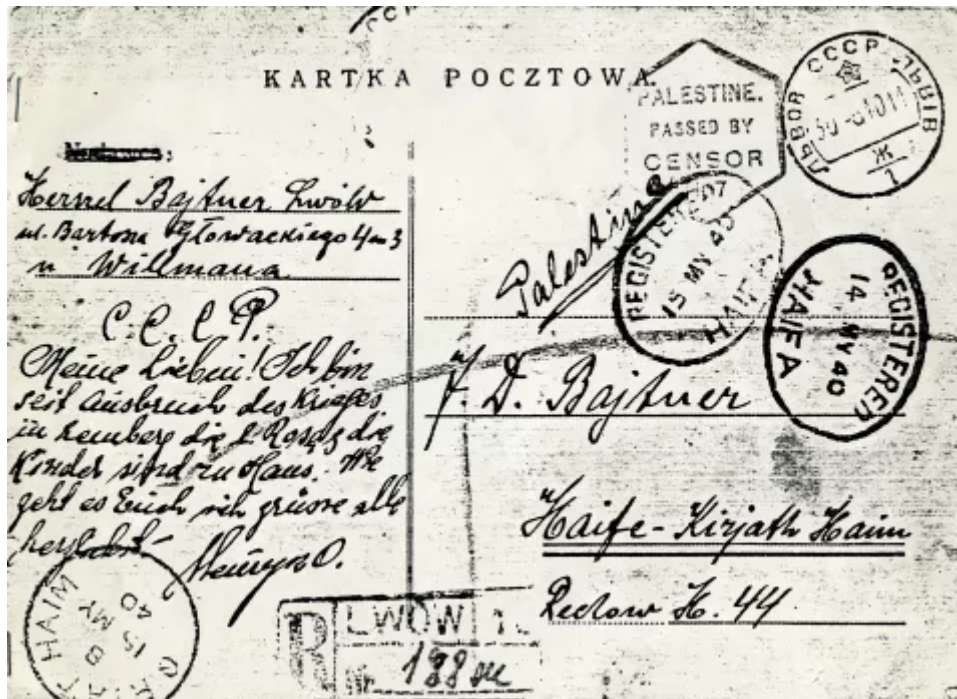 KARTKA POCZTOWA.
PALESTINE.
PASSED BY
CENSOR
ЛЬВОВ СССР ЛЬВІВ
Ж
Hersel Bajtner Lwów
ul. Bartosza Głowackiego 4 m 3
u Willmana
C.C.C.P.
Meine Lieben! Ich bin
seit Ausbruch des Krieges
in Lemberg die l. Rosa & die
Kinder sind zu Haus. Wie
geht es Euch ich grüsse alle
herzlichst
Palestina
REGISTERED
15 MY 40
HAIFA
REGISTERED
14 MY 40
HAIFA
J. D. Bajtner
Haife-Kirjath Haim
H. 44
HAIM
15 MY
40
R LWÓW 1
Nr. 188